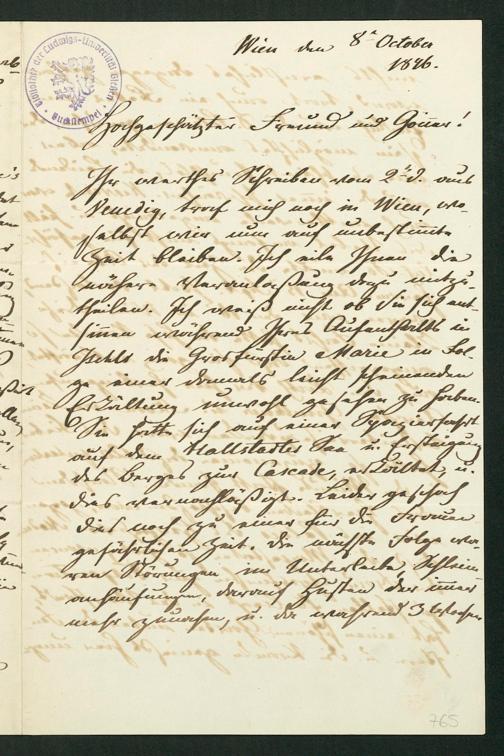 Wien den 8ᵗ October
1846.
Hochgeschätzter Freund und Gönner!
Ihr werthes Schreiben vom 2ᵗ d. aus
Venedig, traf mich noch in Wien, wo-
selbst wir nun auf unbestimmte
Zeit bleiben. Ich eile Ihnen die
nähere Veranlaßung dazu mitzu-
theilen. Ich weiß nicht ob Sie sich ent-
sinnen während Ihres Aufenthalts in
Ischls die Grosfürstin Marie in Fol-
ge einer damals leicht scheinenden
Erkältung unwohl gesehen zu haben.
Sie hatte sich auf einer Spazierfahrt
auf dem Hallstadter See u. Ersteigung
des Berges zur Cascade, erkältet, u.
dies vernachläßigt. Leider geschah
dies noch zu einer für die Frauen
gefährlichen Zeit. Die nächste Folge wa-
ren Störungen im Unterleibe Schleim-
anhäufungen, darauf Husten der immer
mehr zunahm, u. der während 3 Wochen
765